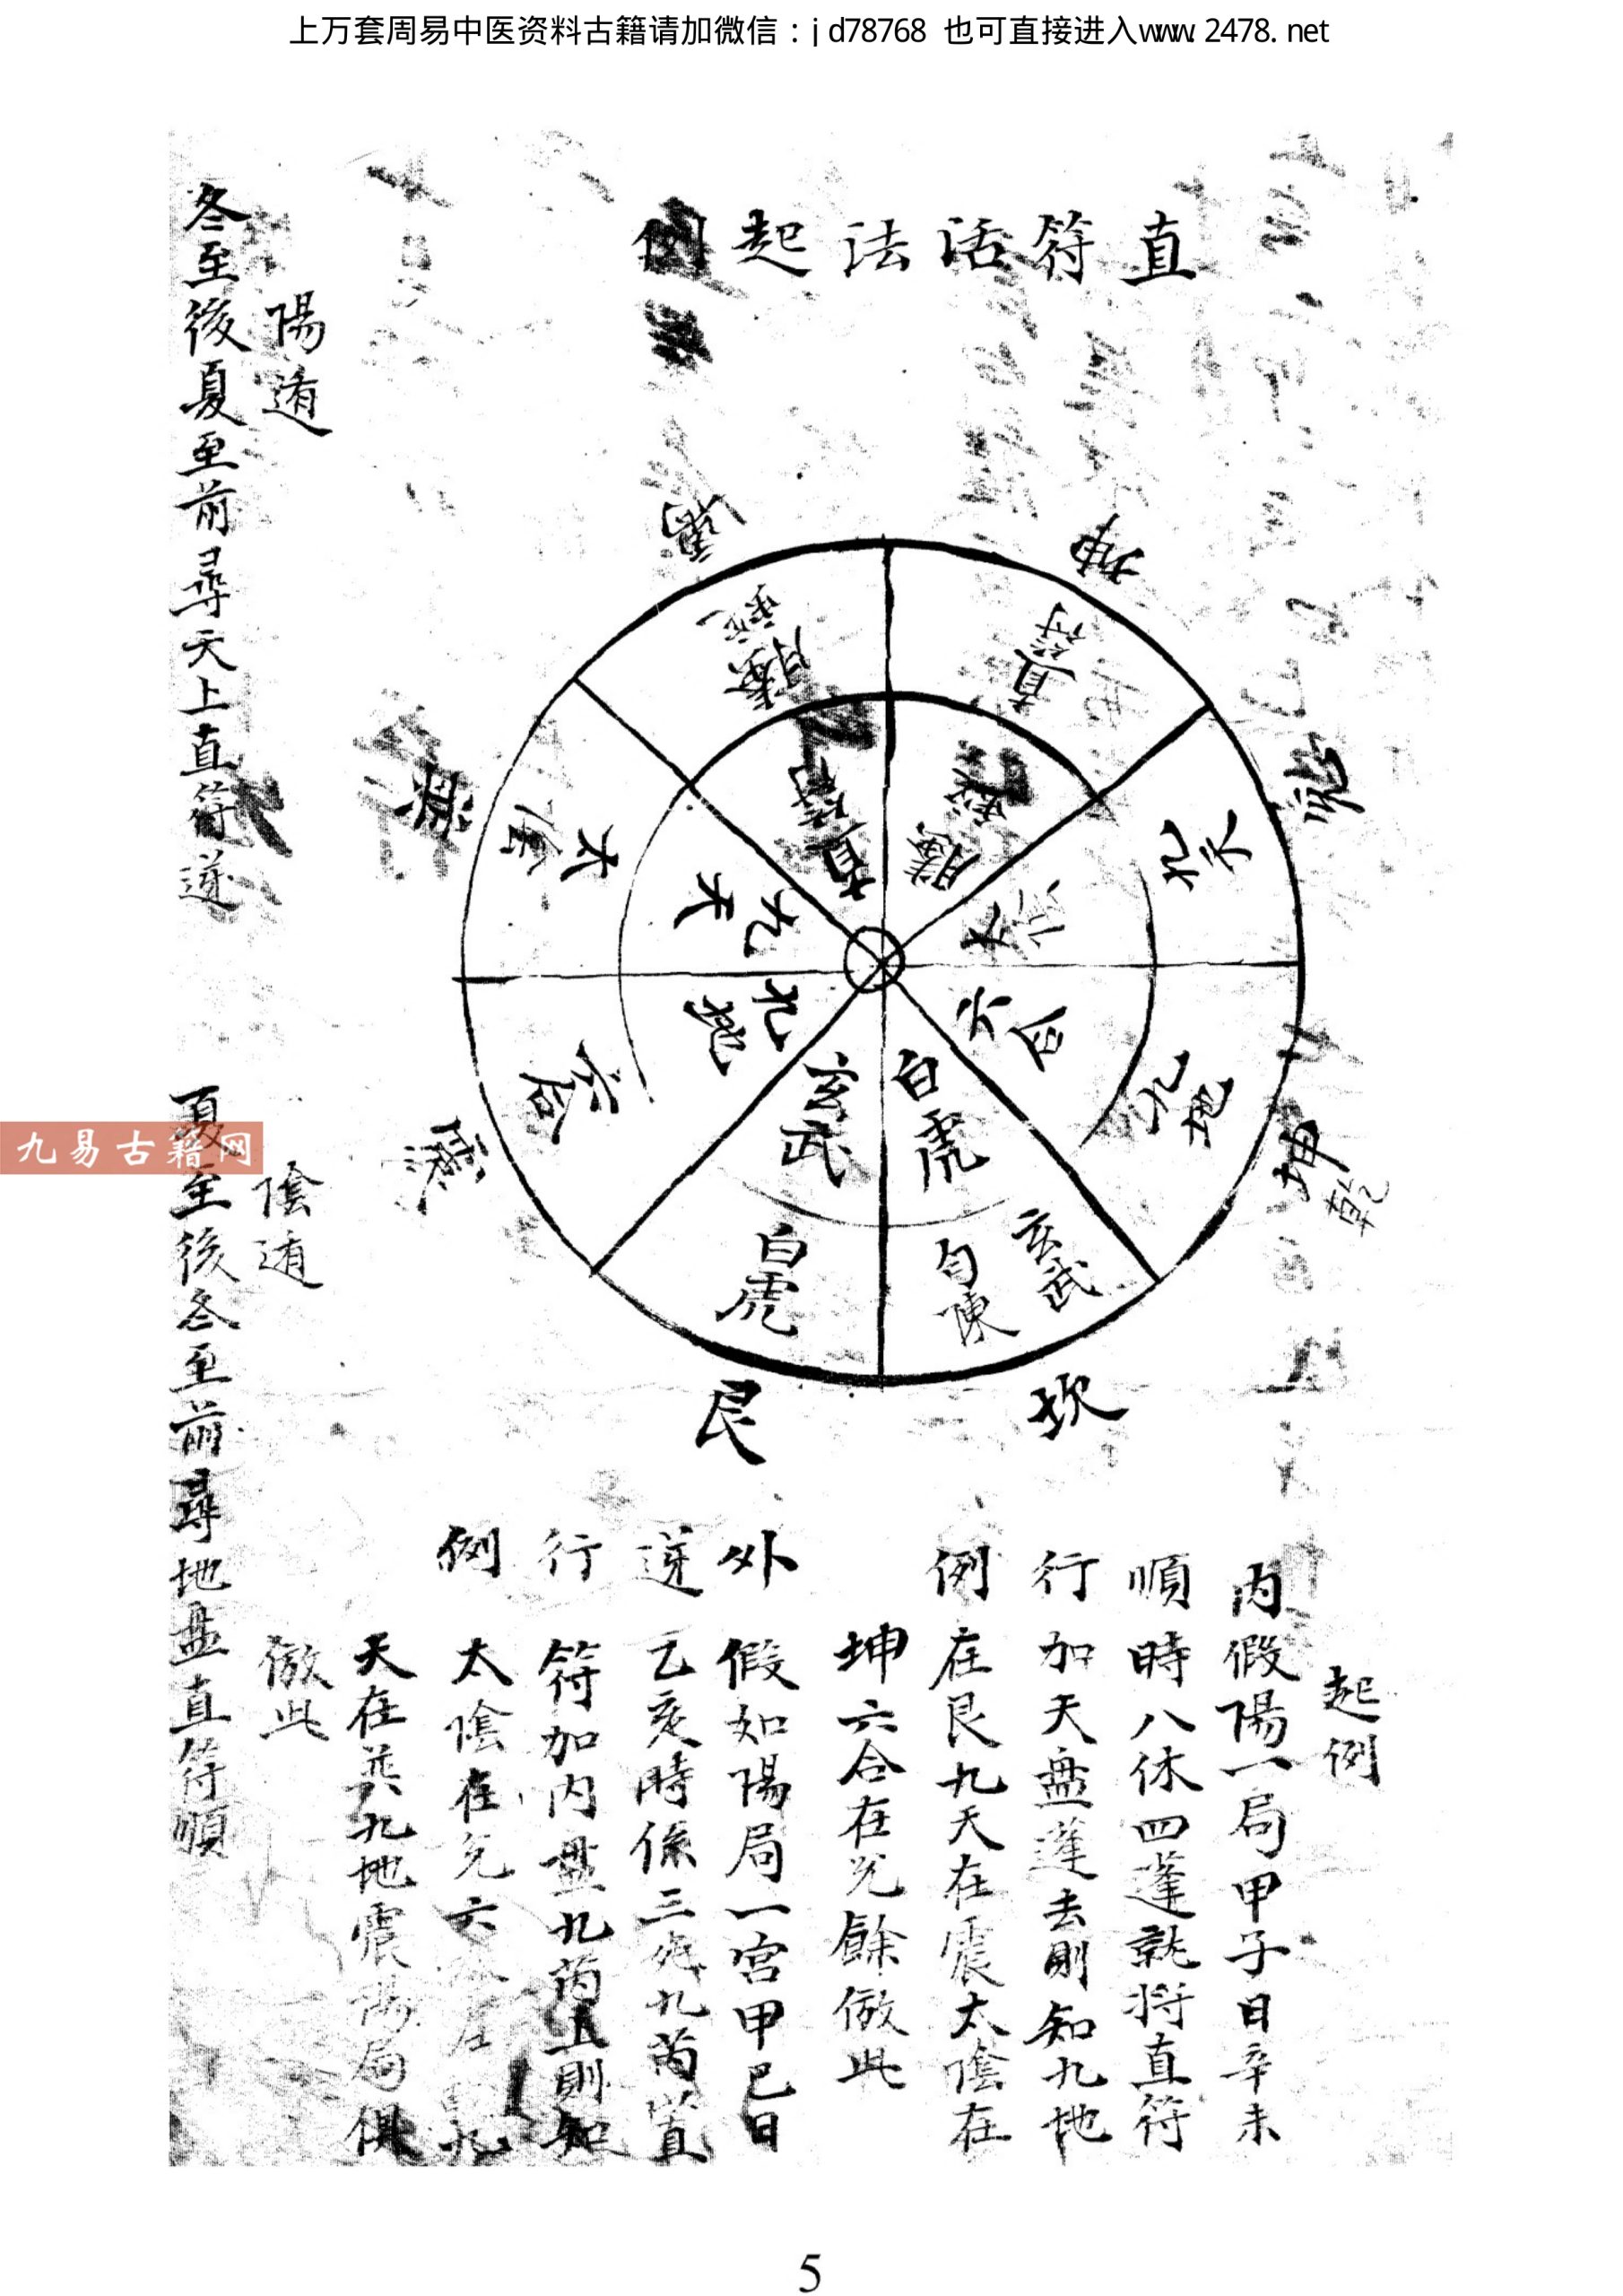 上万套周易中医资料古籍请加微信：jd78768 也可直接进入www.2478.net
直符活法起例
坤
直符
螣
直符
螣
太陰
九天
太
九天
九地
六合
九地
玄武
白虎
白虎
玄武
勾陳
坤
乾
震
艮
坎
起例
内順行例
假陽一局甲子日辛未
時八休四蓬就將直符
加天盤蓬去則知九地
在艮九天在震太陰在
坤六合在兌餘倣此
外逆行例
假如陽局一宮甲己日
乙亥時係三死九芮置
符加内盤九芮上則知
太陰在兌六在九
天在巽九地震陽局俱
倣此
陽遁
冬至後夏至前尋天上直符逆
陰遁
夏至後冬至前尋地盘直符順
九易古籍网
5